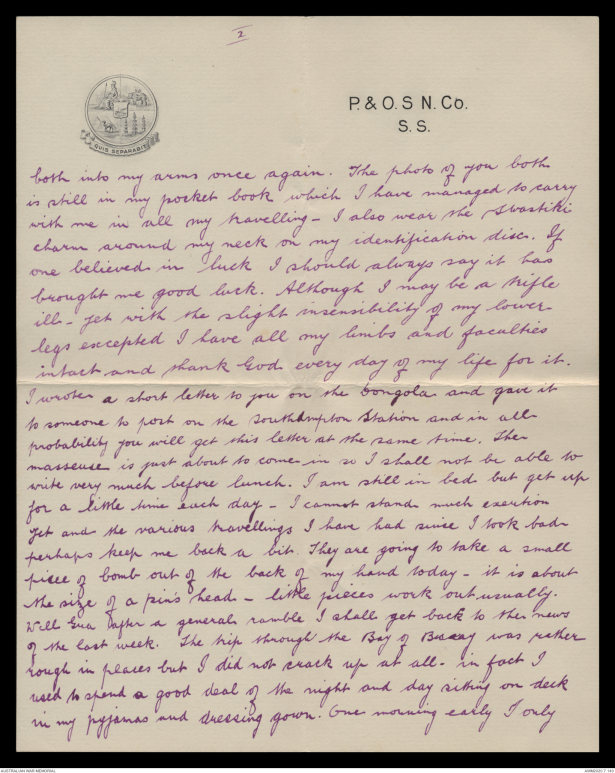 2
P. & O. S N. Co.
S. S.
QUIS SEPARABIT
both into my arms once again. The photo of you both
is still in my pocket book which I have managed to carry
with me in all my travelling - I also wear the Swastiki
charm around my neck on my identification disc. If
one believed in luck I should always say it has
brought me good luck. Although I may be a trifle
ill - yet with the slight insensibility of my lower
legs excepted I have all my limbs and faculties
intact and thank God every day of my life for it.
I wrote a short letter to you on the Dongola and gave it
to someone to post on the Southampton Station and in all
probability you will get this letter at the same time. The
masseuse is just about to come in so I shall not be able to
write very much before lunch. I am still in bed but get up
for a little time each day - I cannot stand much exertion
yet and the various travellings I have had since I took bad
perhaps keep me back a bit. They are going to take a small
piece of bomb out of the back of my hand today - it is about
the size of a pin's head - little pieces work out usually.
Well Eva after a general ramble I shall get back to the news
of the last week. The trip through the Bay of Biscay was rather
rough in places but I did not crack up at all - in fact I
used to spend a good deal of the night and day sitting on deck
in my pyjamas and dressing gown. One morning early I only
AUSTRALIAN WAR MEMORIAL